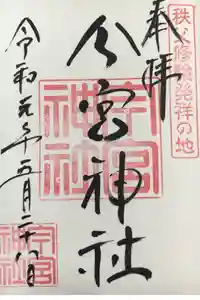 秩父修験発祥の地
奉拝
今宮神社
今宮
神社
令和元年五月二十八日
今宮
神社